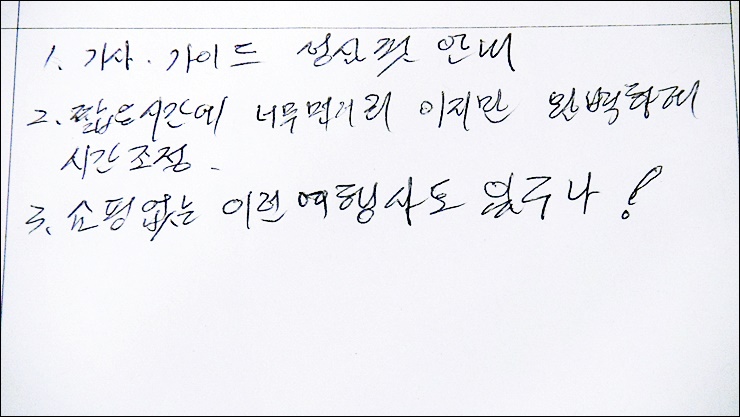 1. 기사. 가이드 성심껏 안내
2. 짧은시간에 너무먼거리 이지만 완벽하게
시간조정.
3. 쇼핑없는 이런여행사도 있구나!